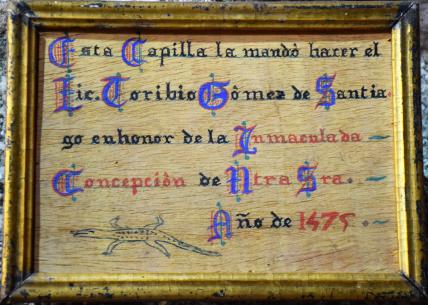 Esta Capilla la mandò hacer el
Lic. Toribio Gòmez de Santia
go en honor de la Inmaculada
Concepciòn de Ntra Sra.
Año de 1475.